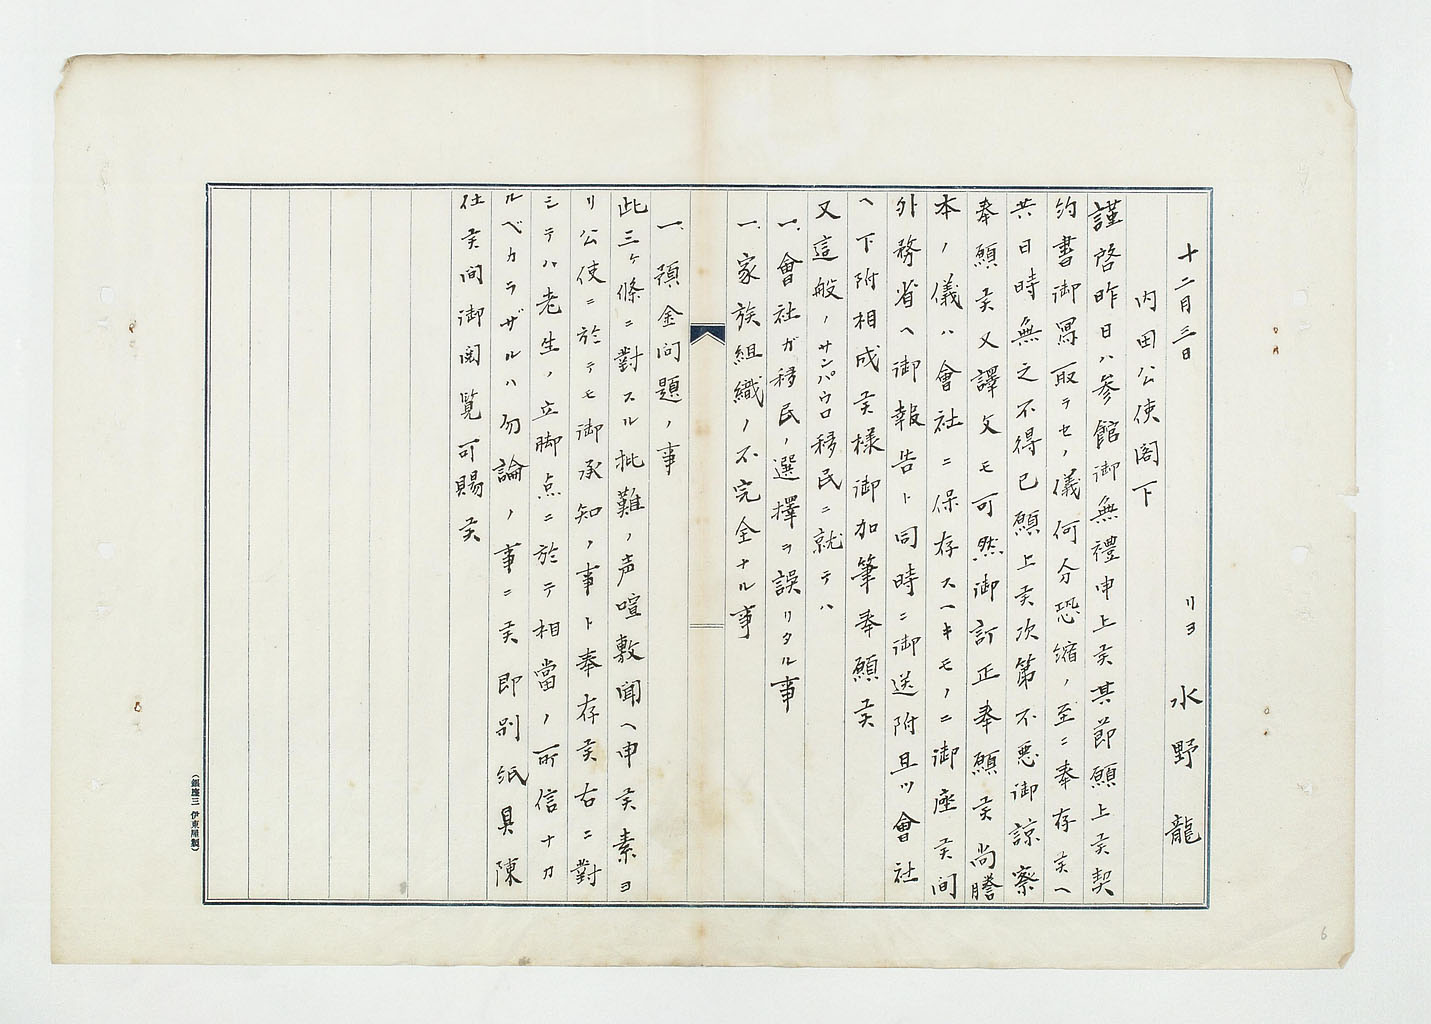 十二月三日　リヨ　水野龍
内田公使閣下
謹啓昨日ハ参館御無禮申上候其節願上候契
約書御冩取ラセノ儀何分恐縮ノ至ニ奉存候ヘ
共日時無之不得已願上候次第不悪御諒察
奉願候又譯文モ可然御訂正奉願候尚謄
本ノ儀ハ會社ニ保存スヘキモノニ御座候間
外務省ヘ御報告ト同時ニ御送附且ツ會社
ヘ下附相成候様御加筆奉願候
又這般ノサンパウロ移民ニ就テハ
一、會社ガ移民ノ選擇ヲ誤リタル事
一、家族組織ノ不完全ナル事
一、預金問題ノ事
此三ヶ條ニ對スル批難ノ声喧敷聞ヘ申候素ヨ
リ公使ニ於テモ御承知ノ事ト奉存候右ニ對
シテハ老生ノ立脚点ニ於テ相當ノ所信ナカ
ルベカラザルハ勿論ノ事ニ候即別紙具陳
仕候間御閲覧可賜候
（銀座三　伊東屋製）
6